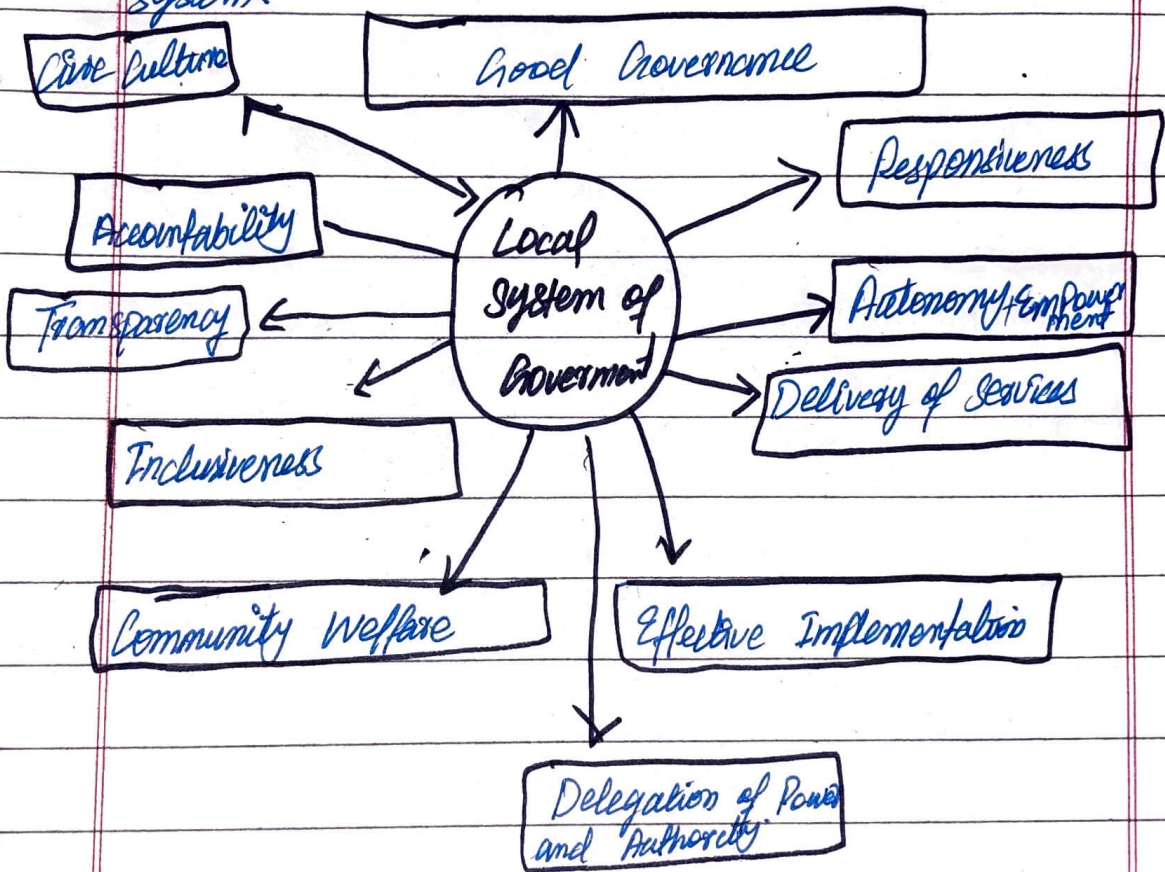 System
Civic Culture
Good Governance
Responsiveness
Accountability
Local
System of
Goverment
Transparency
Autonomy + Empower
ment
Delivery of Services
Inclusiveness
Community Welfare
Effective Implementation
Delegation of Power
and Authority.